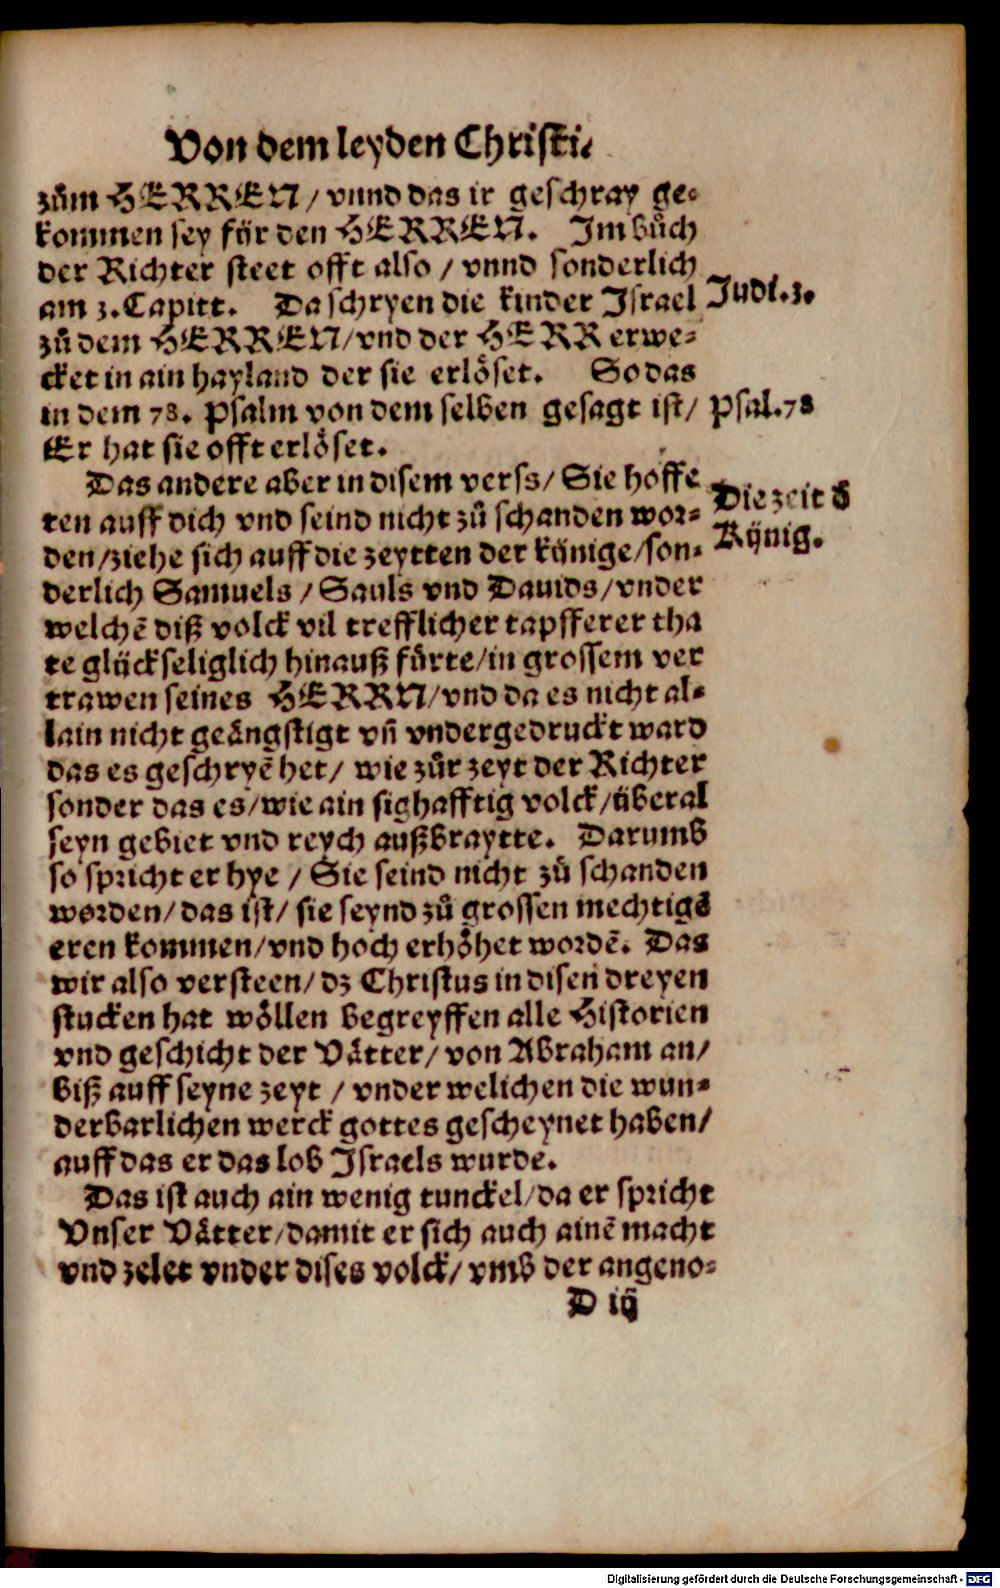 Von dem leyden Christi.
zům HERREN / vnnd das ir geschray ge-
kommen sey für den HERREN. Im bůch
der Richter steet offt also / vnnd sonderlich
am 3. Capitt. Da schryen die kinder Israel
Judi. 3.
zů dem HERREN / vnd der HERR erwe-
cket in ain hayland der sie erlöset. So das
in dem 78. Psalm von dem selben gesagt ist /
Psal. 78
Er hat sie offt erlöset.
Das andere aber in disem verss / Sie hoffe
Die zeit d̕
ten auff dich vnd seind nicht zů schanden wor-
Künig.
den / ziehe sich auff die zeytten der künige / son-
derlich Samuels / Sauls vnd Dauids / vnder
welchē diß volck vil trefflicher tapfferer tha
te glückseliglich hinauß fůrte / in grossem ver
trawen seines HERRN / vnd da es nicht al-
lain nicht geängstigt vn̄ vndergedruckt ward
das es geschryē het / wie zůr zeyt der Richter
sonder das es / wie ain sighafftig volck / überal
seyn gebiet vnd reych außbraytte. Darumb
so spricht er hye / Sie seind nicht zů schanden
worden / das ist / sie seynd zů grossen mechtigē
eren kommen / vnd hoch erhöhet wordē. Das
wir also versteen / dz Christus in disen dreyen
stucken hat wöllen begreyffen alle Historien
vnd geschicht der Vätter / von Abraham an /
biß auff seyne zeyt / vnder welichen die wun-
derbarlichen werck gottes gescheynet haben /
auff das er das lob Israels wurde.
Das ist auch ain wenig tunckel / da er spricht
Vnser Vätter / damit er sich auch ainē macht
vnd zelet vnder dises volck / vmb der angeno-
D iij
Digitalisierung gefördert durch die Deutsche Forschungsgemeinschaft - DFG